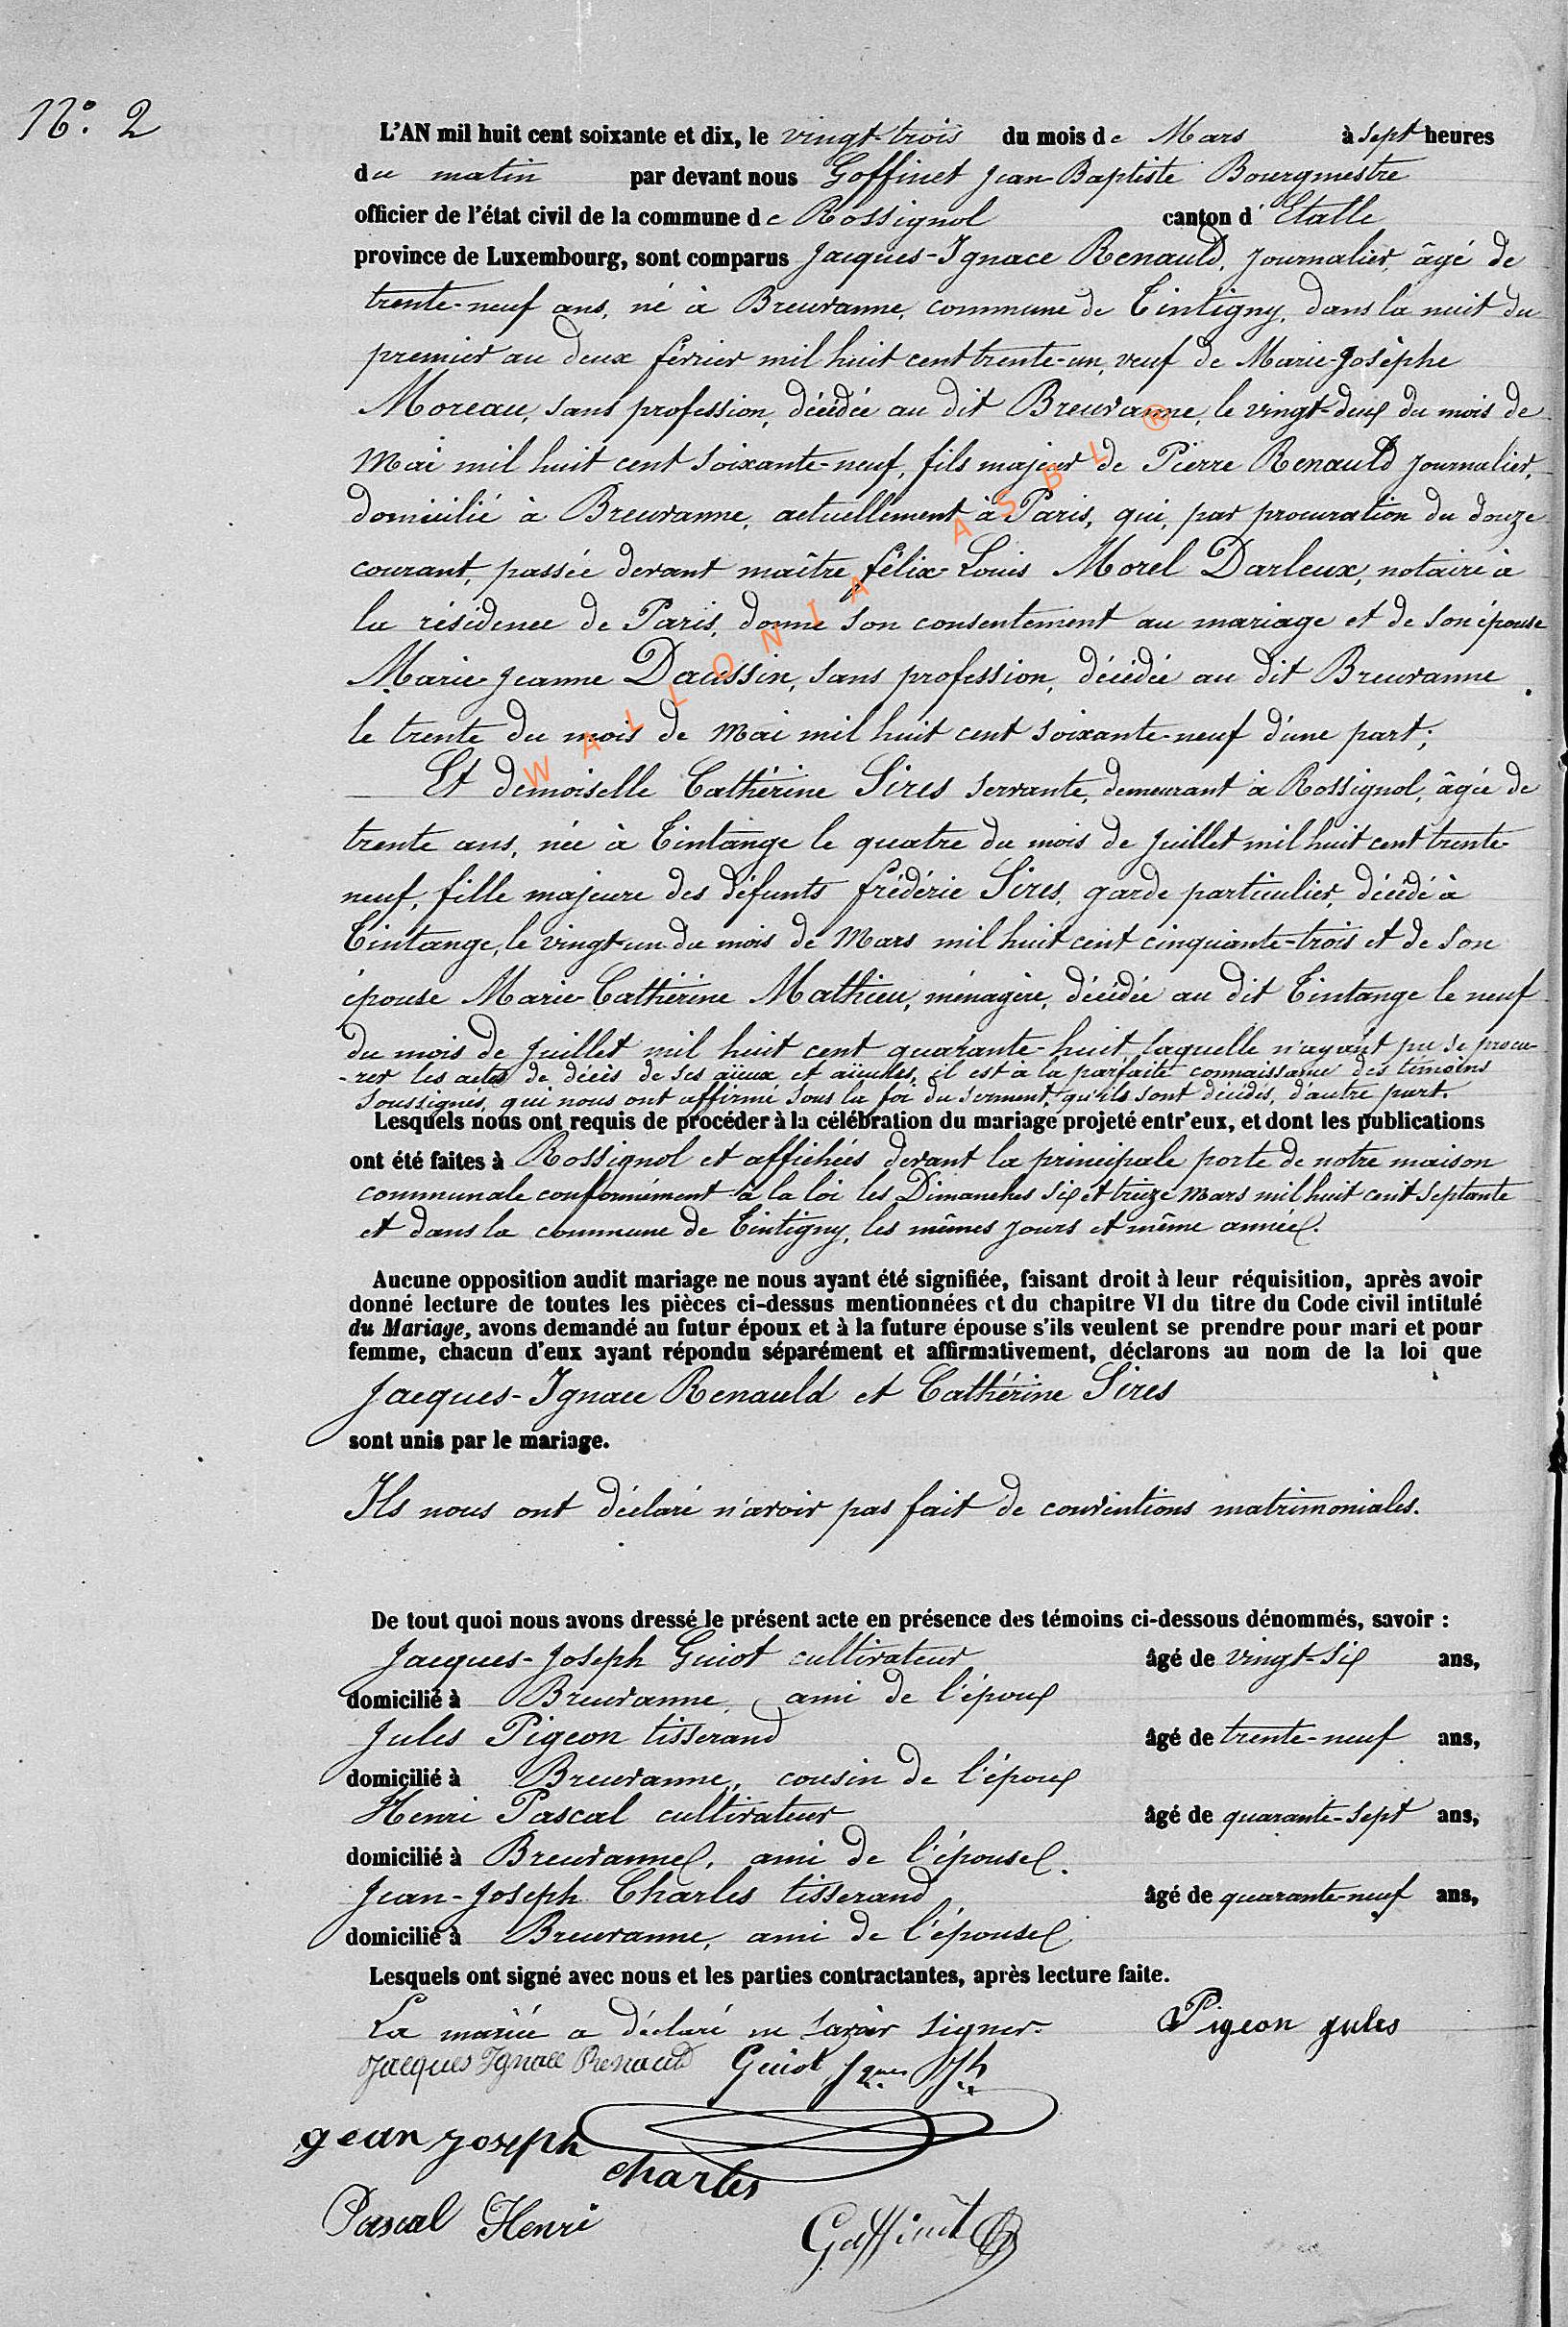 N.° 2
L'AN mil huit cent soixante et dix, le vingt-trois du mois de Mars à sept heures
du matin par devant nous Goffinet Jean-Baptiste Bourgmestre
officier de l'état civil de la commune de Rossignol canton d'Etalle
province de Luxembourg, sont comparus Jacques-Ignace Renauld, journalier, âgé de
trente-neuf ans, né à Breuvanne, commune de Tintigny, dans la nuit du
premier au deux février mil huit cent trente-un, veuf de Marie-Josèphe
Moreau, sans profession, décédée au dit Breuvanne, le vingt-deux du mois de
Mai mil huit cent soixante-neuf, fils majeur de Pierre Renauld journalier,
domicilié à Breuvanne, actuellement à Paris, qui, par procuration du douze
courant, passée devant maître félix-Louis Morel Darleux, notaire à
la résidence de Paris, donne son consentement au mariage et de son épouse
Marie-Jeanne Daussin, sans profession, décédée au dit Breuvanne
le trente du mois de Mai mil huit cent soixante-neuf d'une part;
Et demoiselle Cathérine Sires servante, demeurant à Rossignol, âgée de
trente ans, née à Tintange le quatre du mois de Juillet mil huit cent trente-
neuf, fille majeure des défunts frédéric Sires, garde particulier, décédé à
Tintange, le vingt-un du mois de Mars mil huit cent cinquante-trois et de son
épouse Marie-Cathérine Mathieu, ménagère, décédée au dit Tintange le neuf
du mois de Juillet mil huit cent quarante-huit, laquelle n'ayant pu se procu-
-rer les actes de décès de ses aïeux et aïeules, il est à la parfaite connaissance des témoins
soussignés, qui nous ont affirmé sous la foi du serment, qu'ils sont décédés, d'autre part.
Lesquels nous ont requis de procéder à la célébration du mariage projeté entr'eux, et dont les publications
ont été faites à Rossignol et affichées devant la principale porte de notre maison
communale conformément à la loi les Dimanches six et treize Mars mil huit cent septante
et dans la commune de Tintigny, les mêmes jours et même année.
Aucune opposition audit mariage ne nous ayant été signifiée, faisant droit à leur réquisition, après avoir
donné lecture de toutes les pièces ci-dessus mentionnées et du chapitre VI du titre du Code civil intitulé
du Mariage, avons demandé au futur époux et à la future épouse s'ils veulent se prendre pour mari et pour
femme, chacun d'eux ayant répondu séparément et affirmativement, déclarons au nom de la loi que
Jacques-Ignace Renauld et Cathérine Sires
sont unis par le mariage.
Ils nous ont déclaré n'avoir pas fait de conventions matrimoniales.
De tout quoi nous avons dressé le présent acte en présence des témoins ci-dessous dénommés, savoir :
Jacques-Joseph Guiot cultivateur âgé de vingt-six ans,
domicilié à Breuvanne, ami de l'époux
Jules Pigeon tisserand âgé de trente-neuf ans,
domicilié à Breuvanne, cousin de l'époux
Henri Pascal cultivateur âgé de quarante-sept ans,
domicilié à Breuvanne, ami de l'épouse.
Jean-Joseph Charles tisserand âgé de quarante-neuf ans,
domicilié à Breuvanne, ami de l'épouse
Lesquels ont signé avec nous et les parties contractantes, après lecture faite.
La mariée a déclaré ne savoir signer. Pigeon jules
Jacques Ignace Renaud Guiot Jques Jh
jean joseph
charles
Pascal Henri Goffinet
WALLONIA ASBL ®